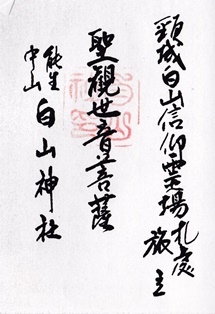 頸城白山信仰霊場札處
旅主
聖觀世音菩薩
能生
中山
白山神社